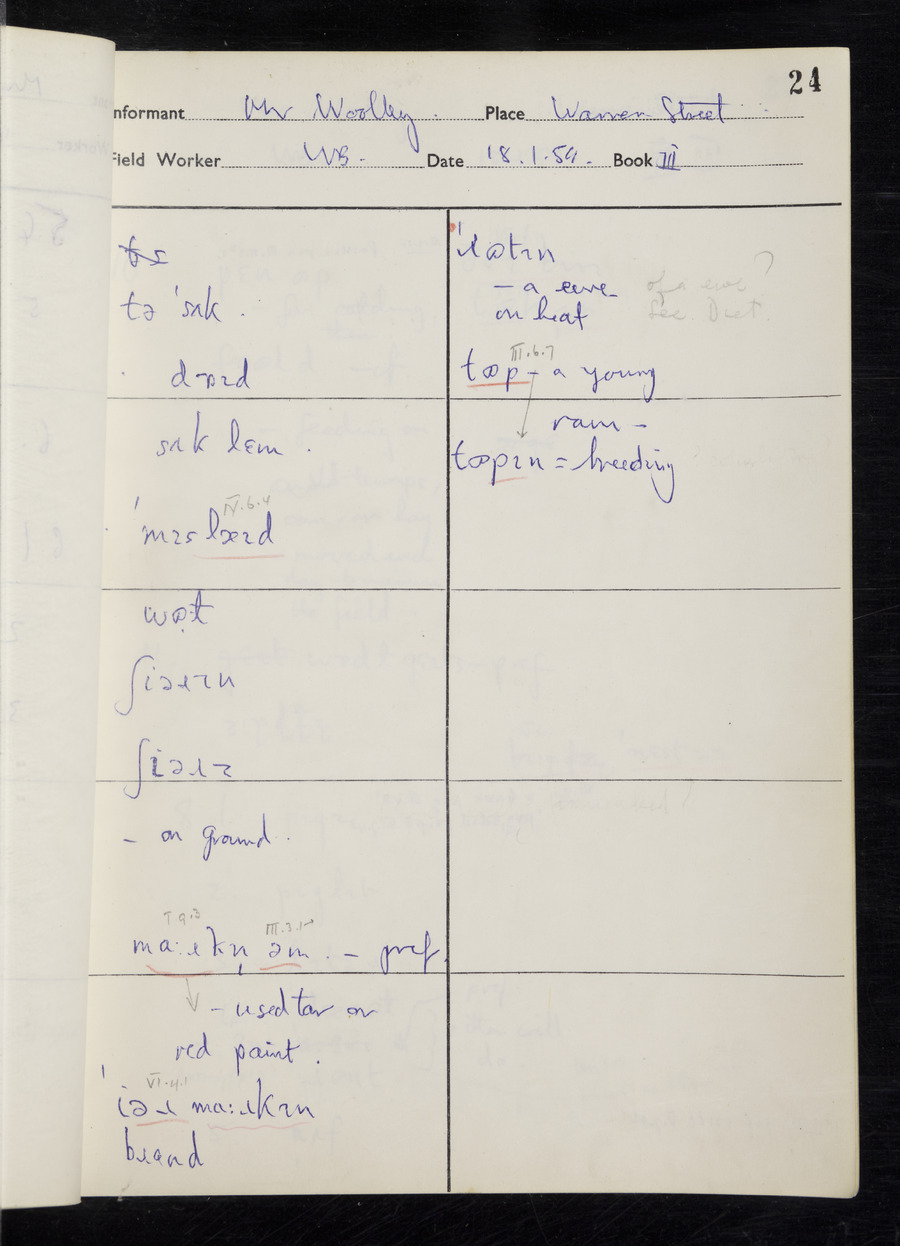 24
Informant Mr Woolley. Place Warren Street
Field Worker WB. Date 18.1.54. Book III
tə 'sʌk.
dɹɒɪd
sʌk lɛm.
IV.6.4
'mɪslæɪd
wɒt
ʃiəɹɪn
ʃiəɹɪ
- on ground.
I.9.3 III.3.1
ma:ɹkn̩ əm. - pref.
- used tar or
red paint.
VI.4.1
iəɹ ma:ɹkɪn
bɹand
'ɹɷtɪn
- a ewe
on heat
of a ewe?
See Dict.
III.6.7
tɷp - a young
ram -
tɷpɪn = breeding